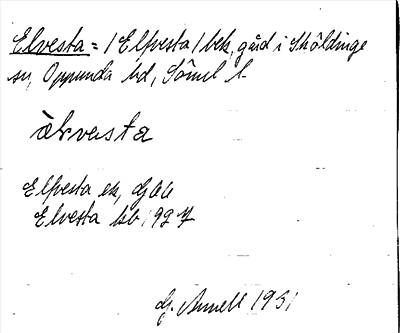 Elvesta = /Elfvesta/ bek, gård i Sköldinge
sn, Oppunda hd, Söml l
älvesta
Elfvesta ek, GAA
Elvesta kb 1927
G. Annell 1951